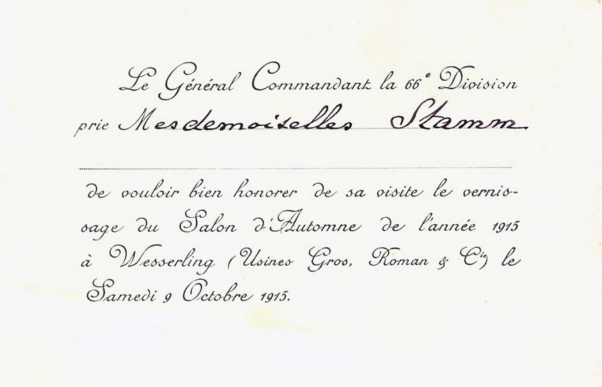 Le Général Commandant la 66e Division
prie Mesdemoiselles Stamm
de vouloir bien honorer de sa visite le vernis-
sage du Salon d'Automne de l'année 1915
à Wesserling (Usines Gros, Roman & Cie) le
Samedi 9 Octobre 1915.